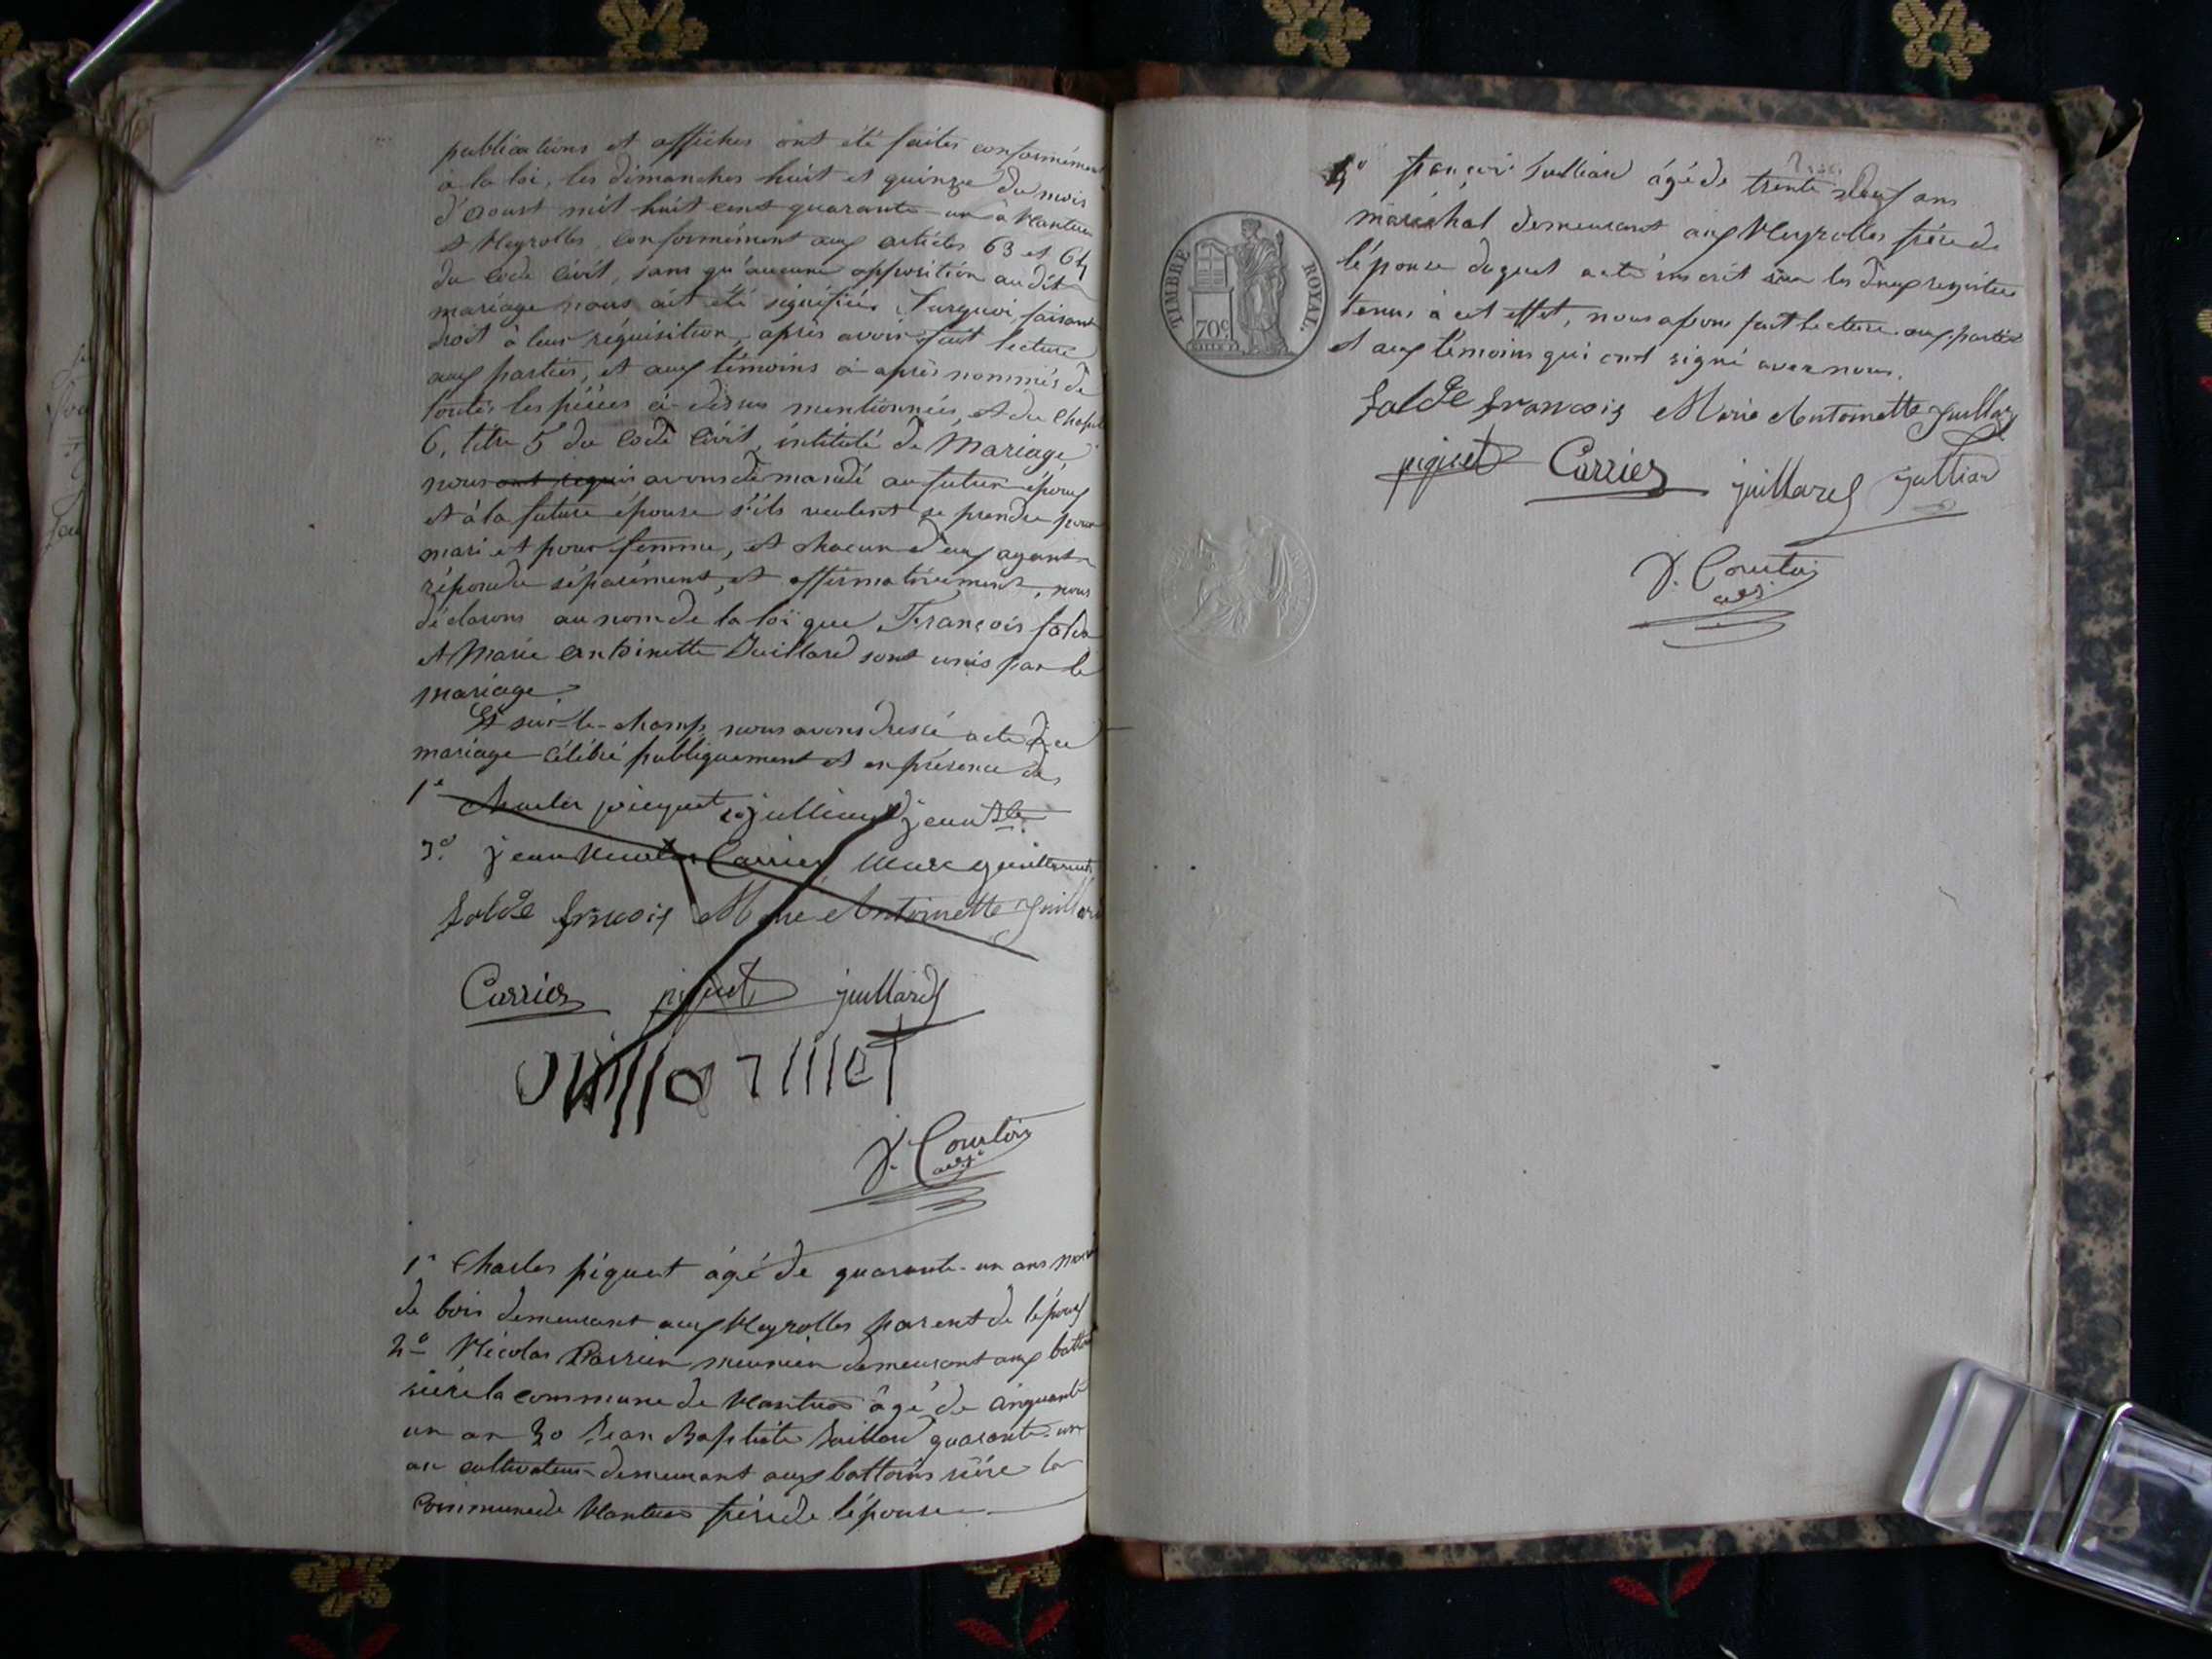 publications et affiches ont été faites conformément
à la loi, les dimanches huit et quinze du mois
d'aoust mil huit cent quarante-un à Nantua
et Neyrolles, conformément aux articles 63 et 64
du code civil, sans qu'aucune opposition au dit
mariage nous ait été signifiée. Surquoi, faisant
droit à leur réquisition, après avoir fait lecture
aux parties, et aux témoins ci après nommés de
toutes les pièces ci-dessus mentionnées, et du chapitre
6, titre 5 du code civil, intitulé du Mariage,
nous ont requis avons demandé au futur époux
et à la future épouse s'ils veulent se prendre pour
mari et pour femme, et chacun d'eux ayant
répondu séparément, et affirmativement, nous
déclarons au nom de la loi que François falde
et Marie antoinette Juillard sont unis par le
mariage.
Et sur-le-champ, nous avons dressé acte de ce
mariage célébré publiquement et en présence des
1° Charles picquet juilliard jean Bte
3° jean Carrier
falde françois Marie Antoinette Juillard
Carrier piquet juillard
J. Courtois
adj.
1° Charles piquet âgé de quarante-un ans
de bois demeurant aux Neyrolles parent de l'époux
2° Nicolas Carrier meunier demeurant aux battoirs
rière la commune de Nantua âgé de cinquante
un an 3o Jean Baptiste Juillard quarante-un
an cultivateur demeurant aux battoirs rière la
commune de Nantua frère de l'épouse
4° françois Julliard âgé de trente neuf ans
maréchal demeurant aux Neyrolles frère de
l'épouse duquel acte inscrit sur les deux registres
tenus à cet effet, nous avons fait lecture aux parties
et aux témoins qui ont signé avec nous.
TIMBRE ROYAL.
70c
falde francois Marie Antoinette Juillard
piquet Carrier juillard Julliard
J. Courtois
adj.